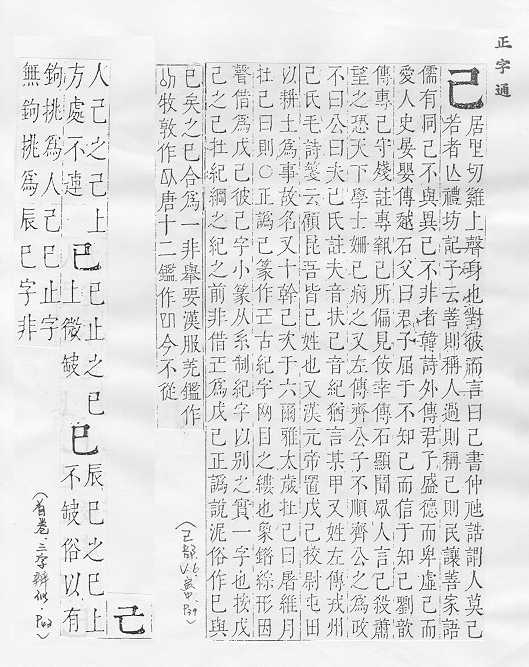 正字通
己
居里切雞上聲身也對彼而言曰己書仲虺誥謂人莫己
若者亾禮坊記子云善則稱人過則稱己則民讓善家語
儒有同己不與異己不非者韓詩外傳君子盛德而卑虛己而
愛人史晏嬰傳越石父曰君子屈于不知己而信于知己劉歆
傳專己守殘註專執己所偏見佞幸傳石顯聞眾人言己殺蕭
望之恐天下學士姍己病之又左傳齊公子不順齊公之為政
不曰公曰夫己氏註夫音扶己音紀猶言某甲又姓左傳戎州
己氏毛詩箋云顧昆吾皆己姓也又漢元帝置戊己校尉屯田
以耕土爲事故名又十幹己次于六爾雅太歲在己曰屠維月
在己曰則○正譌己篆作古紀字网目之縷也象絡綜形因
聲借爲戊己彼己字小篆从糸制紀字以别之實一字也按戊
己之己在紀綱之紀之前非借爲戊己正譌說泥俗作巳與
已矣之已合爲一非舉要漢服羌鑑作
牧敦作唐十二鑑作今不從
(己部 P.39)
己
人己之己上
方處不連
已
已止之已
上微缺
巳
辰巳之巳上
不缺俗以有
鉤挑爲人己已止字
無鉤挑爲辰巳字非
(首卷.三字辨似. P.42)